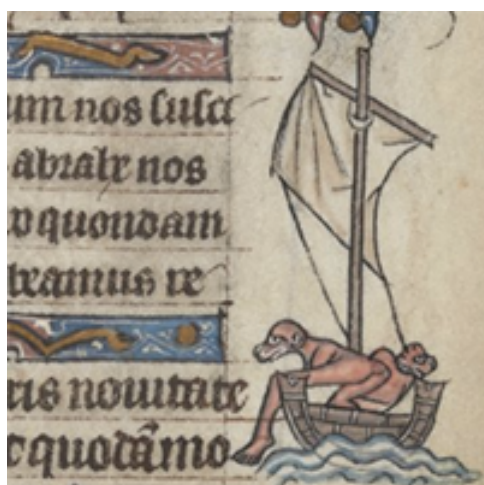 um nos susci
abrahe nos
quondam
beamus re
ris nouitate
quodāmo